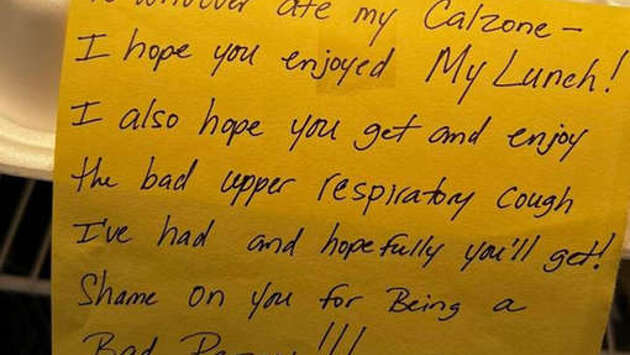 To whoever ate my Calzone –
I hope you enjoyed My Lunch!
I also hope you get and enjoy
the bad upper respiratory cough
I've had and hopefully you'll get!
Shame on you for Being a
Bad !!!